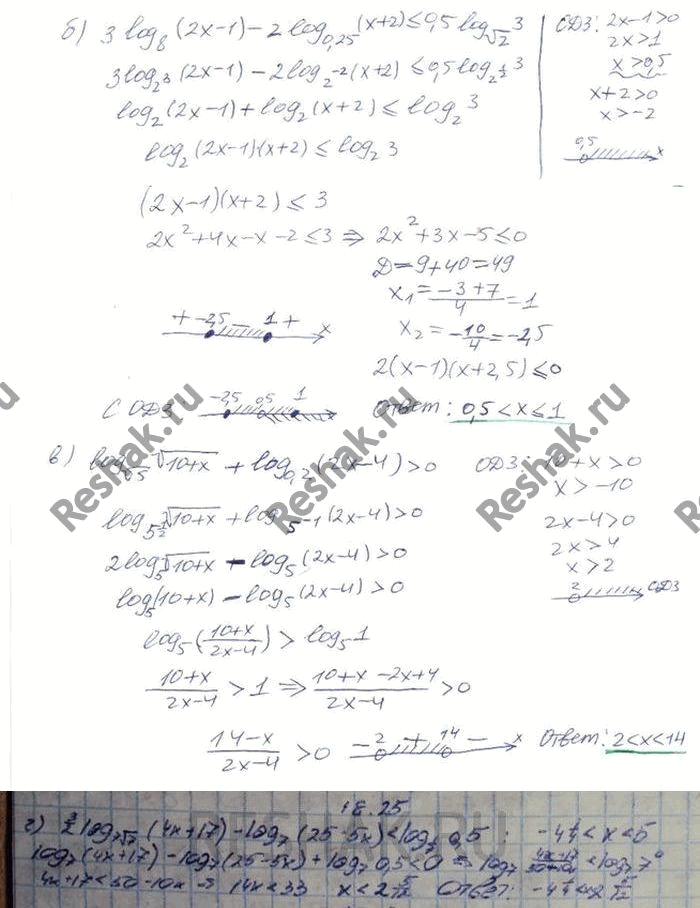 б) 3 log₈ (2x-1) - 2 log₀,₂₅ (x+2) ≤ 0,5 log_√2 3
ОДЗ: 2x-1>0
2x>1
x>0,5
x+2>0
x>-2
0,5 x
3 log_2³ (2x-1) - 2 log_2⁻² (x+2) ≤ 0,5 log_2^½ 3
log₂ (2x-1) + log₂ (x+2) ≤ log₂ 3
log₂ (2x-1)(x+2) ≤ log₂ 3
(2x-1)(x+2) ≤ 3
2x²+4x-x-2≤3 ⇒ 2x²+3x-5≤0
Д=9+40=49
x₁ = (-3+7)/4 = 1
x₂ = -10/4 = -2,5
+ -2,5 - 1 + x
2(x-1)(x+2,5) ≤ 0
С ОДЗ: -2,5 0,5 1
Ответ: 0,5 < x ≤ 1
в) √(10+x) + log₀,₂ (2x-4) > 0
ОДЗ: 10+x>0
x>-10
2x-4>0
2x>4
x>2
2 ОДЗ
log_5^½ √(10+x) + log_5⁻¹ (2x-4) > 0
2 log₅ √(10+x) - log₅ (2x-4) > 0
log₅ (10+x) - log₅ (2x-4) > 0
log₅ ((10+x)/(2x-4)) > log₅ 1
(10+x)/(2x-4) > 1 ⇒ (10+x-2x+4)/(2x-4) > 0
(14-x)/(2x-4) > 0
- 2 + 14 - x
Ответ: 2<x<14
18.25
г) log_7√7 (4x+17) - log₇ (25-5x) < log₇ 0,5 :
log₇ (4x+17) - log₇ (25-5x) + log₇ 0,5 < 0 ⇒ log₇ < log₇ 7⁰
4x+17 < 50-10x ⇒ 14x < 33
Ответ:
Reshak.ru
Reshak.ru
Reshak.ru
Reshak.ru
RESHAK.RU